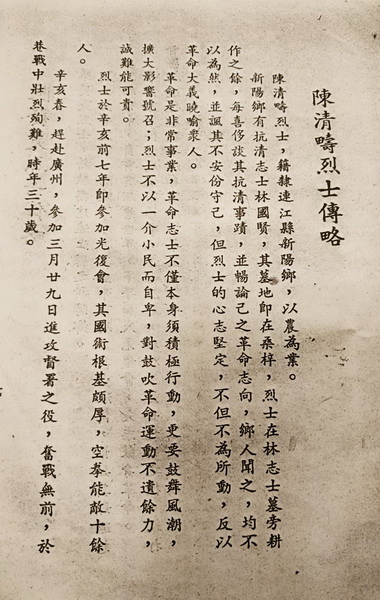 陳清疇烈士傳略
陳清疇烈士，籍隸連江縣新陽鄉，以農為業。
新陽鄉有抗清志士林國賢，其墓地即在桑梓，烈士在林志士墓旁耕
作之餘，每喜侈談其抗清事蹟，並暢論己之革命志向，鄉人聞之，均不
以為然，並諷其不安份守己，但烈士的心志堅定，不但不為所動，反以
革命大義曉喻衆人。
革命是非常事業，革命志士不僅本身須積極行動，更要鼓舞風潮，
擴大影響號召；烈士不以一介小民而自卑，對鼓吹革命運動不遺餘力，
誠難能可貴。
烈士於辛亥前七年即參加光復會，其國術根基頗厚，空拳能敵十餘
人。
辛亥春，趕赴廣州，參加三月廿九日進攻督署之役，奮戰無前，於
巷戰中壯烈殉難，時年三十歲。